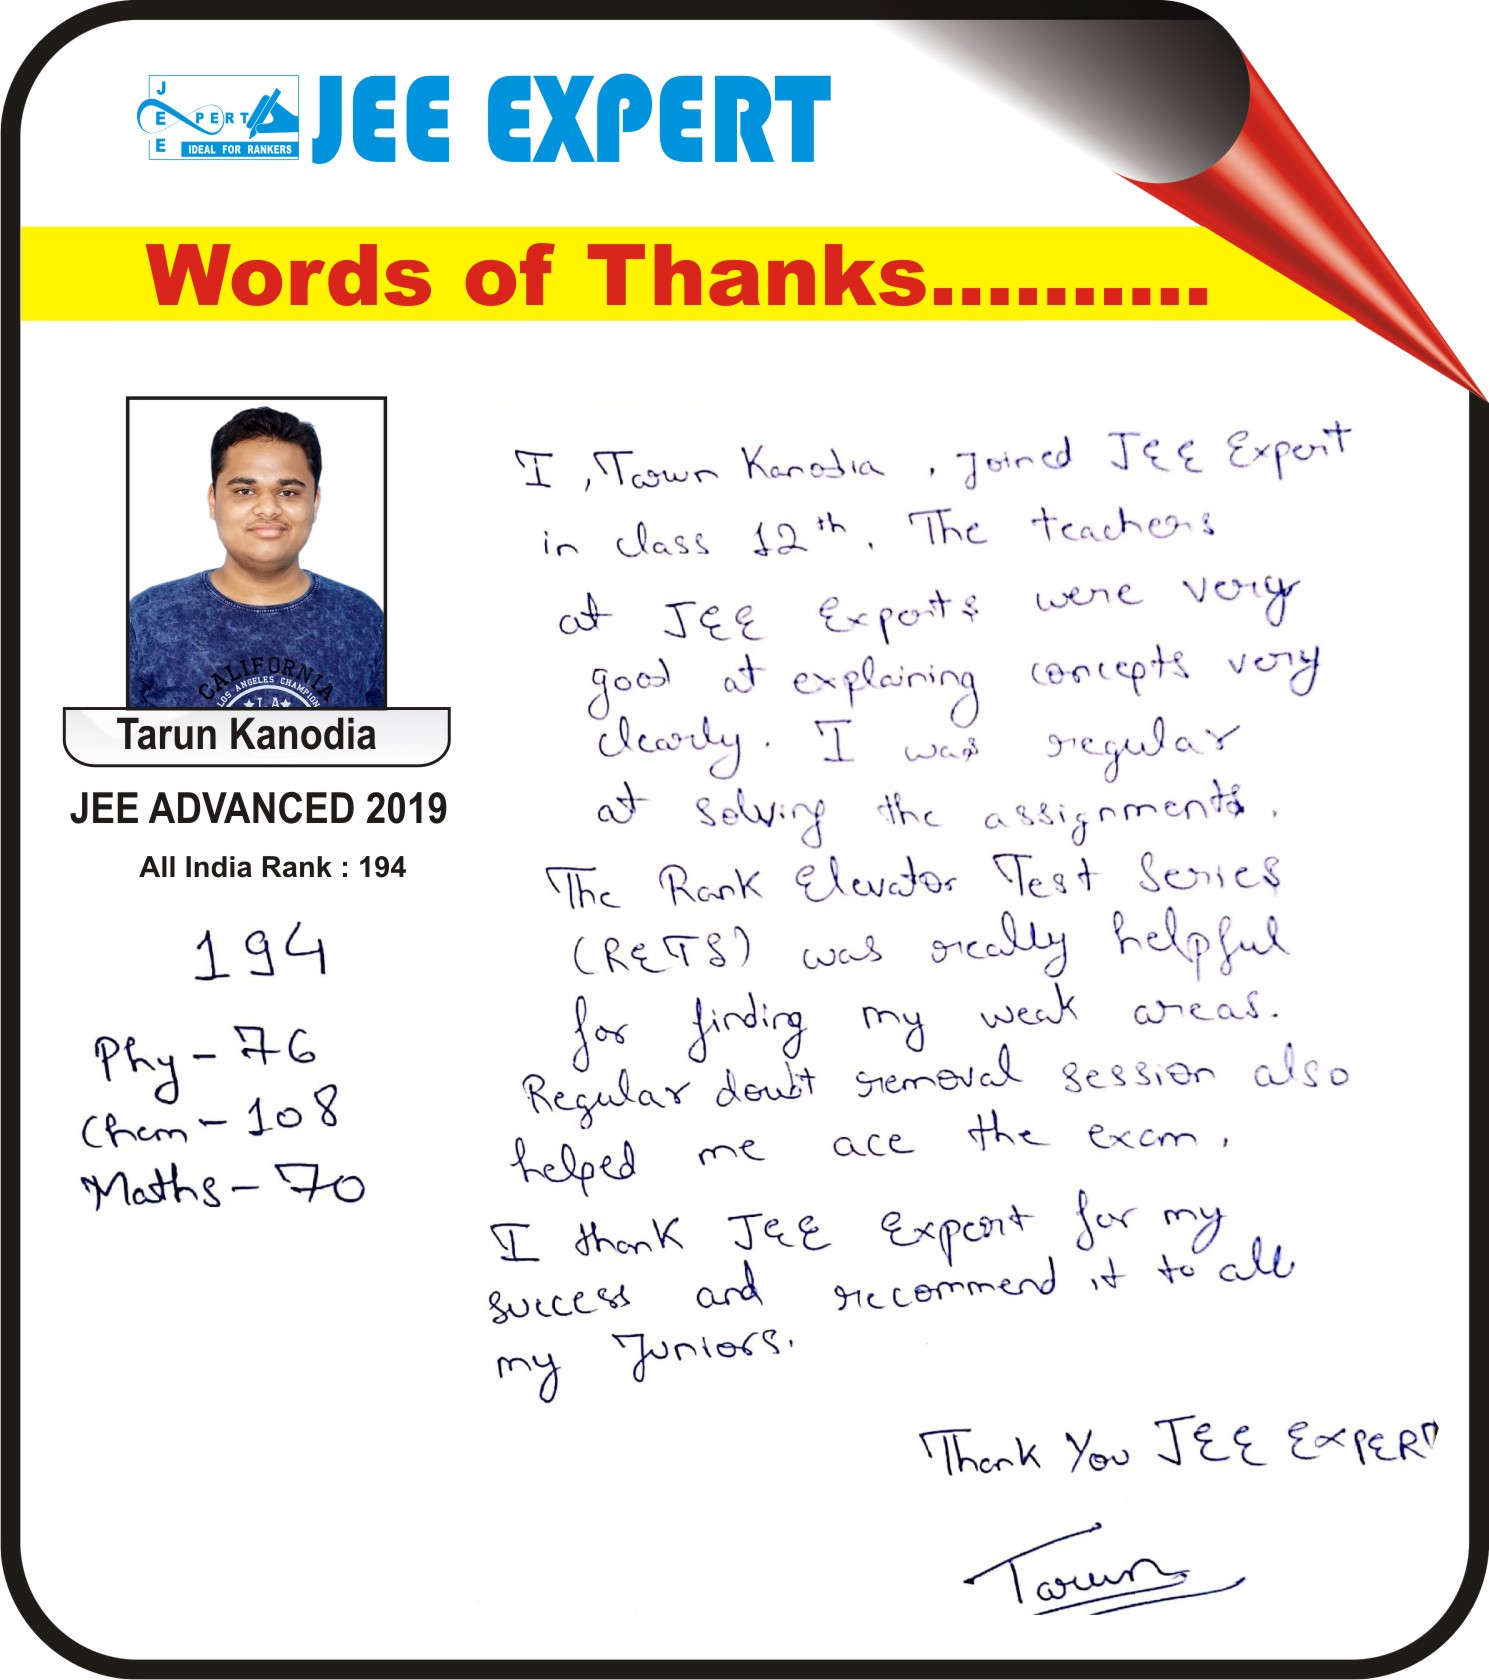 J
E PERT
E IDEAL FOR RANKERS
JEE EXPERT
Words of Thanks..........
CALIFORNIA
LOS ANGELES CHAMPION
L.A
Tarun Kanodia
JEE ADVANCED 2019
All India Rank : 194
194
Phy - 76
Chem - 108
Maths - 70
I, Tarun Kanodia, Joined JEE Expert
in class 12th. The teachers
at JEE Experts were very
good at explaining concepts very
clearly. I was regular
at solving the assignments.
The Rank Elevator Test Series
(RETS) was really helpful
for finding my weak areas.
Regular doubt removal session also
helped me ace the exam.
I thank JEE Expert for my
success and recommend it to all
my Juniors.
Thank You JEE EXPERT
Tarun